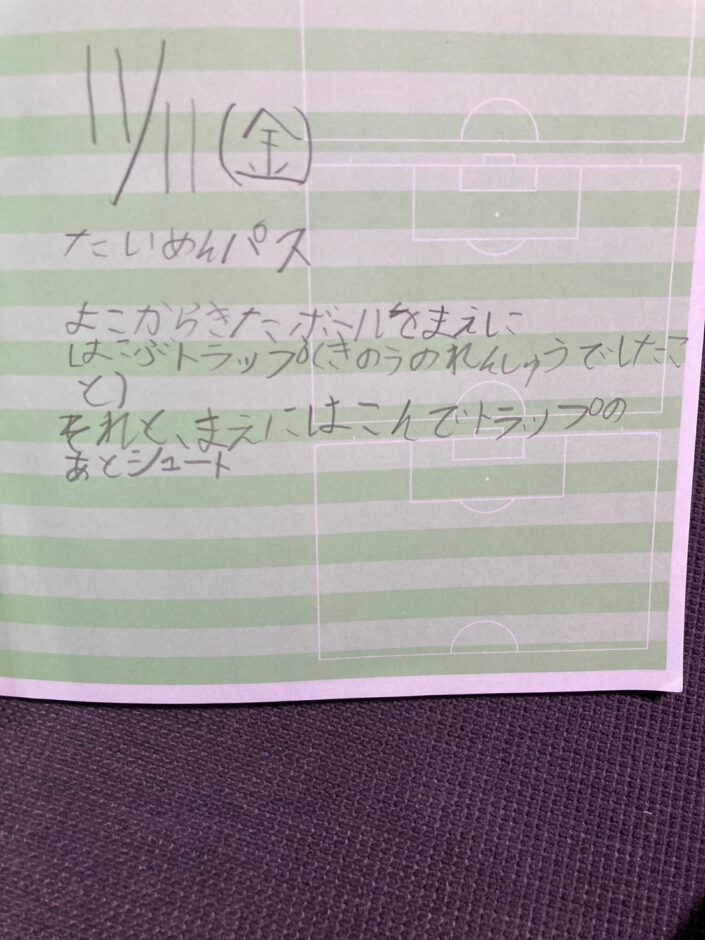 11/11(金)
たいめんパス
よこからきたボールをまえに
はこぶトラップ(きのうのれんしゅうでしたこ
と)
それと、まえにはこんでトラップの
あとシュート